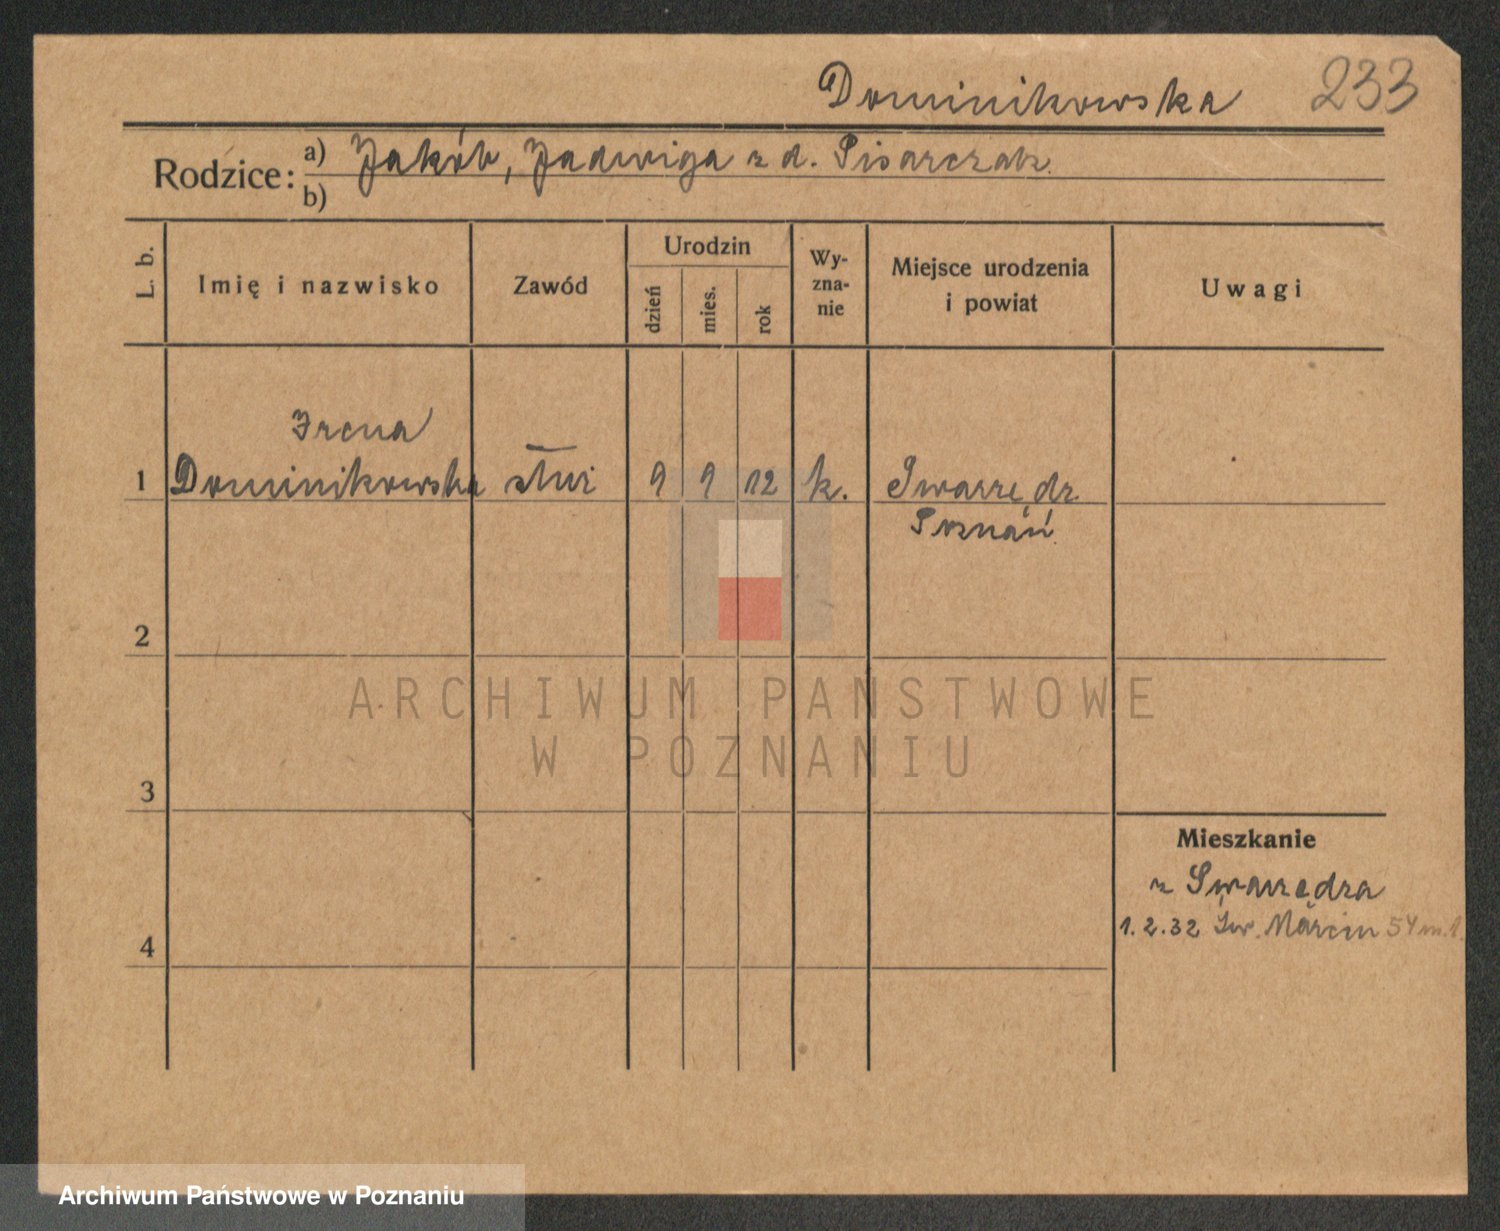 Dominikowska 233
Rodzice: a) Jakób, Jadwiga z d. Pisarczak
b)
L. b. Imię i nazwisko Zawód Urodzin dzień mies. rok Wy-zna-nie Miejsce urodzenia i powiat Uwagi
Irena
1 Dominikowska służ 9 9 12 k. Swarzędz
Poznań
2
ARCHIWUM PAŃSTWOWE
W POZNANIU
3
Mieszkanie
z Swarzędza
1.2.32 Św. Marcin 54 m. 1.
4
Archiwum Państwowe w Poznaniu